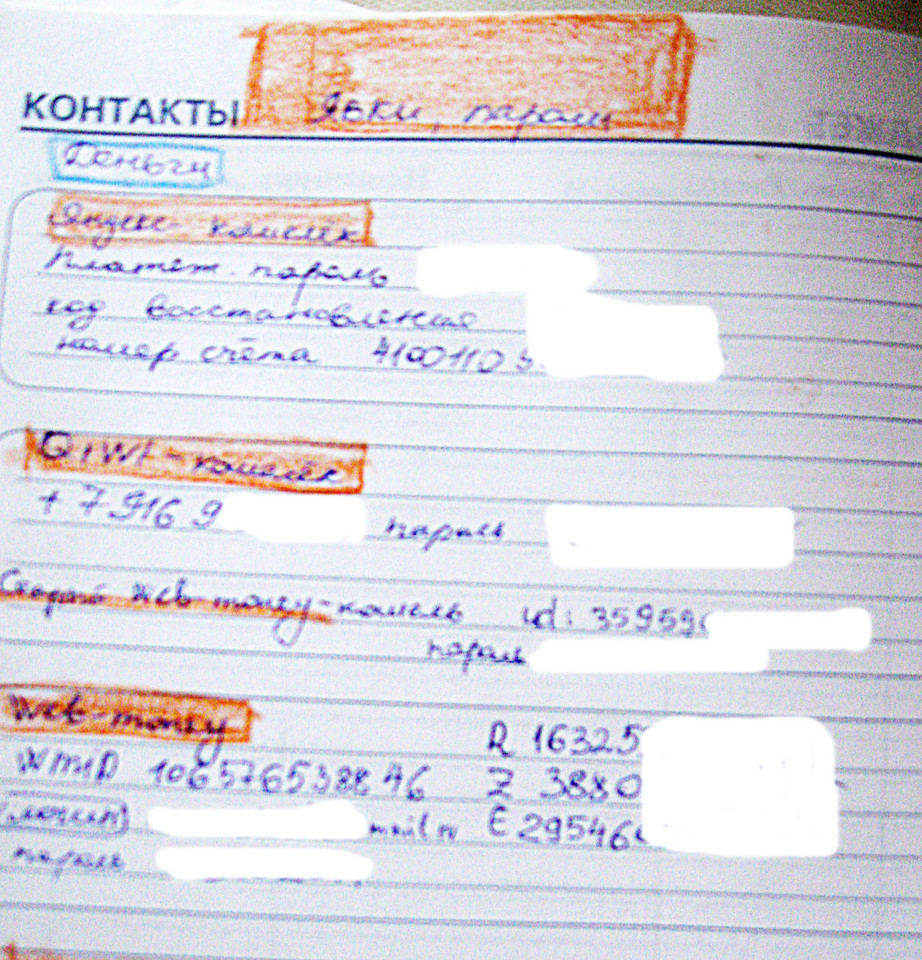 КОНТАКТЫ Явки, пароли
Деньги
Яндекс-кошелёк
Платёж. пароль
код восстановления
номер счёта 4100110
QIWI-кошелёк
+7 916 9 пароль
Старый Web-money-кошель id: 359596
пароль
Web-money R 16325
WMID 106576538846 Z 3880
логин mail ru E 29546
пароль